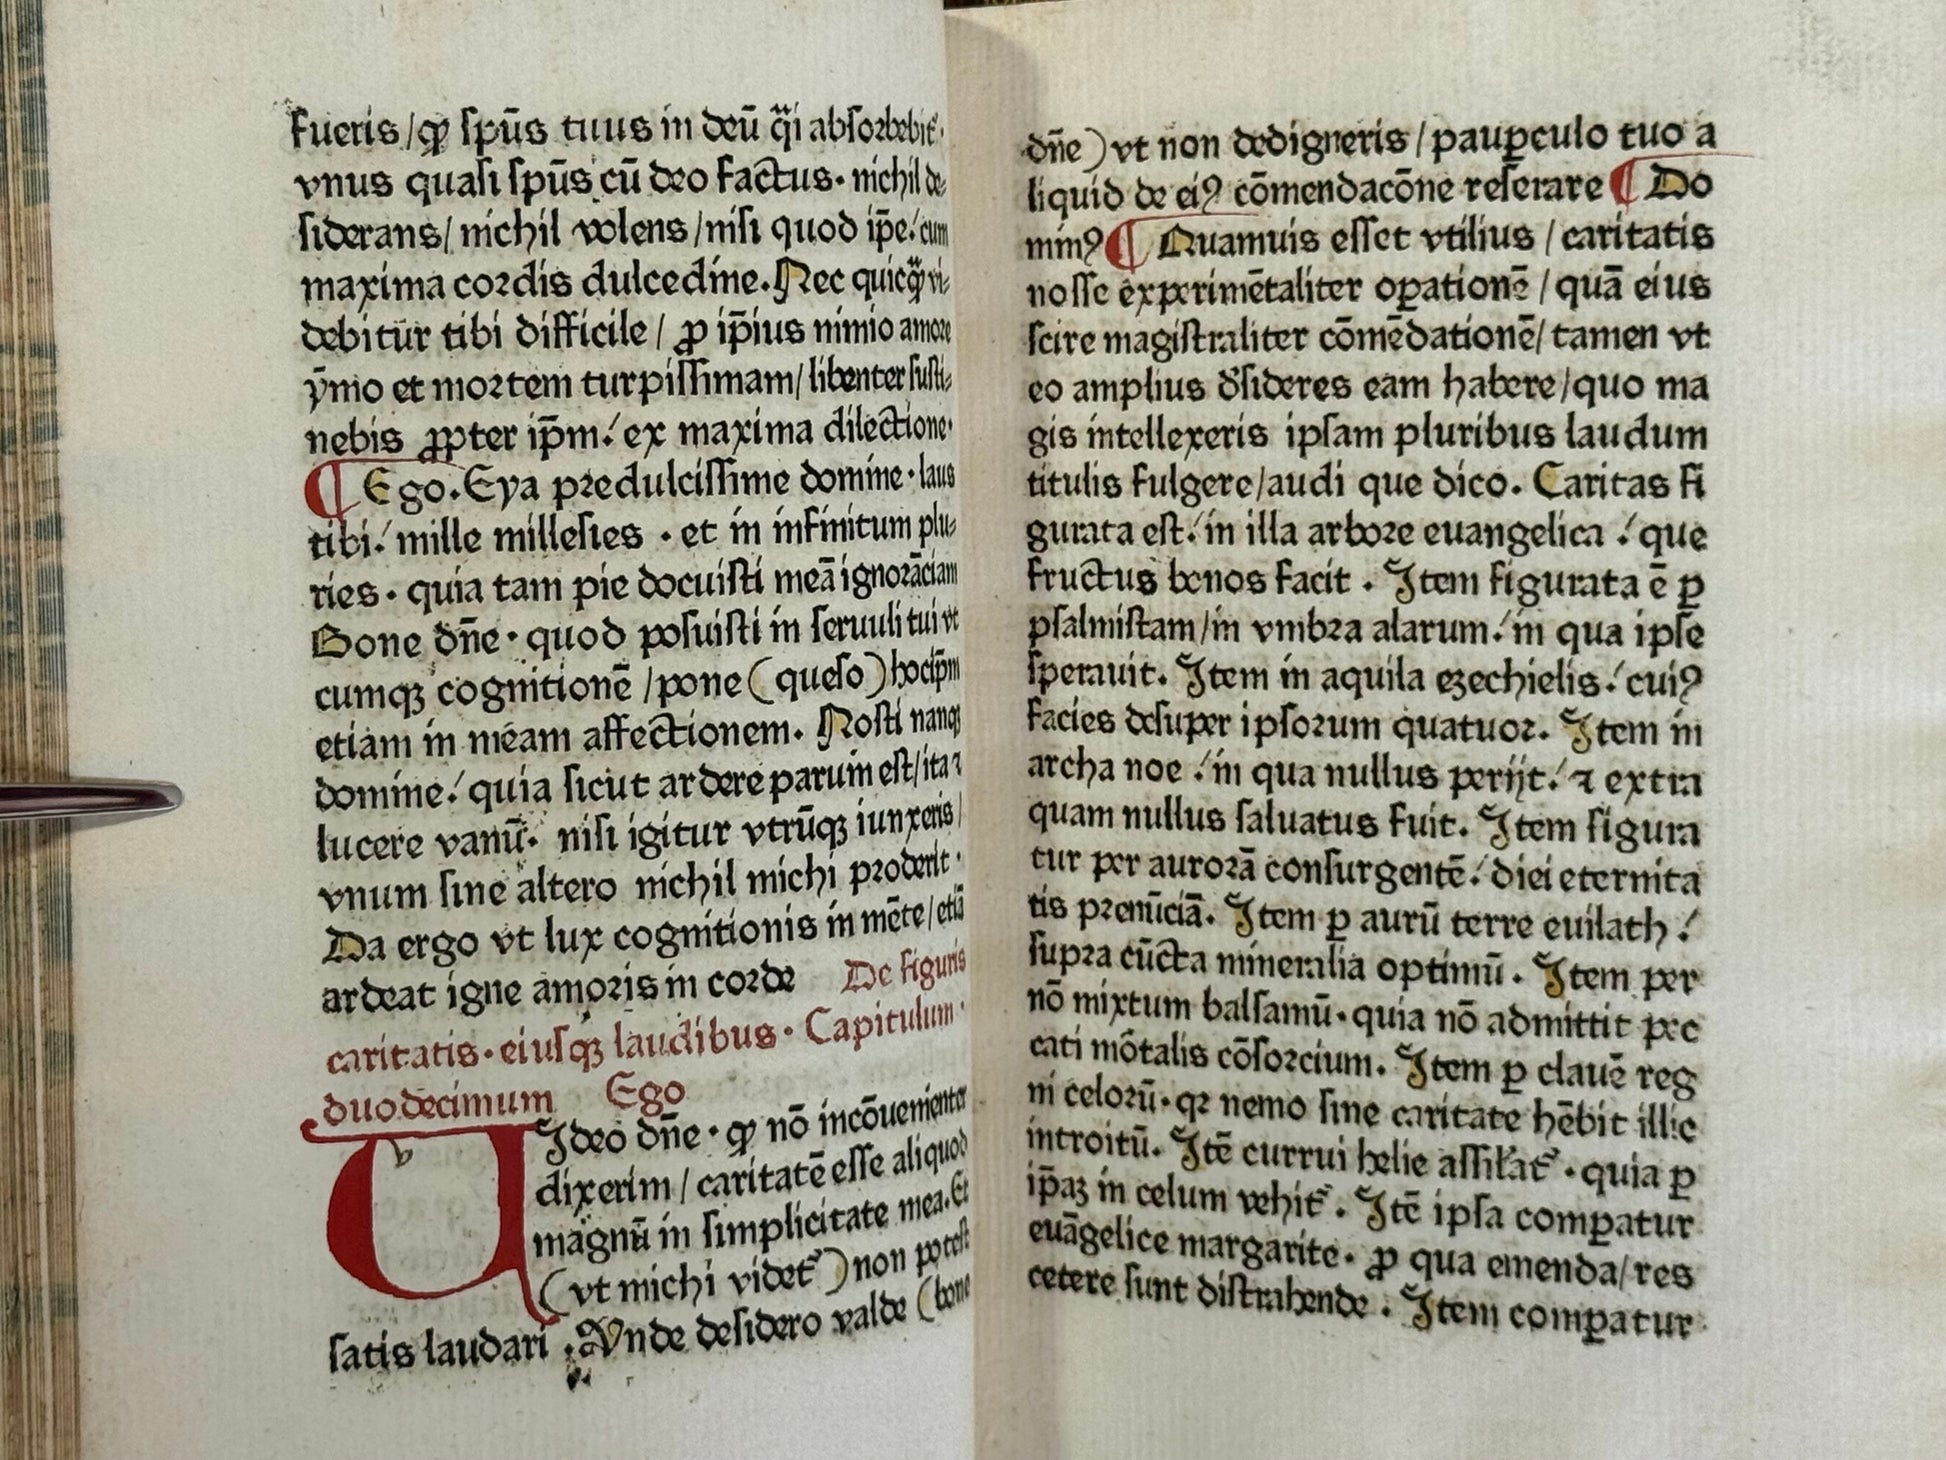 fueris/ꝙ ſpūs tuus in deū q̈i abſorbebit᷑.
vnus quaſi ſpūs cū deo factus. nichil de⸗
ſiderans/ nichil volens/niſi quod ip̄e./ cum
maxima cordis dulcedine. Nec quicq̈ꝫ vi⸗
debitur tibi difficile/ ꝓ ip̄ius nimio amore
ẏmo et mortem turpiſſimam/ libenter ſuſti⸗
nebis ꝓpter ip̄m./ ex maxima dilectione.
¶ Ego. Eya predulciſſime domine. laus
tibi./ mille milleſies . et in infinitum plu⸗
ries. quia tam pie docuiſti meā ignorāciam
Bone dn̄e. quod poſuiſti in ſeruuli tui vt
cumqꝫ cognitionē /pone (queſo) hoc ip̄m
etiam in meam affectionem. Noſti nanqꝫ
domine./ quia ſicut ardere parum eſt/ ita ⁊
lucere vanū. niſi igitur vtrūqꝫ iunxeris/
vnum ſine altero nichil michi proderit.
Da ergo vt lux cognitionis in mēte/ etiā
ardeat igne amoris in corde De figuris
caritatis. eiuſqꝫ laudibus. Capitulum.
duodecimum Ego
VIdeo dn̄e. ꝙ nō incōuenienter
dixerim/ caritatē eſſe aliquod
magnū in ſimplicitate mea. Et
(vt michi videt᷑) non poteſt
ſatis laudari . Vnde deſidero valde (bone
dn̄e) vt non dedigneris/ pauꝑculo tuo a
liquid de eiꝰ cōmendacōne reſerare ¶ Do
minꝰ ¶ Quamuis eſſet vtilius / caritatis
noſſe experimētaliter oꝑationē / quā eius
ſcire magiſtraliter cōmēdationē/ tamen vt
eo amplius d̕ſideres eam habere/quo ma
gis intellexeris ipſam pluribus laudum
titulis fulgere/audi que dico. Caritas fi
gurata eſt./ in illa arbore euangelica ./ que
fructus bonos facit . Item figurata ē ꝑ
pſalmiſtam/in vmbra alarum./ in qua ipſe
ſperauit. Item in aquila ezechielis./ cuiꝰ
facies deſuper ipſorum quatuor. Item in
archa noe ./ in qua nullus perijt./ ⁊ extra
quam nullus ſaluatus fuit. Item figura
tur per aurorā conſurgentē./ diei eternita
tis prenūciā. Item ꝑ aurū terre euilath ./
ſupra cūcta mineralia optimū. Item per
nō mixtum balſamū. quia nō admittit pec
cati mōtalis cōſorcium. Item ꝑ clauē reg
ni celorū. qꝛ nemo ſine caritate hēbit illic
introitū. Itē currui helie aſſiłat᷑ . quia ꝑ
ip̄aꝫ in celum vehit᷑. Itē ipſa comꝑatur
euāgelice margarite. ꝓ qua emenda/ res
cetere ſunt diſtrahende . Item comꝑatur